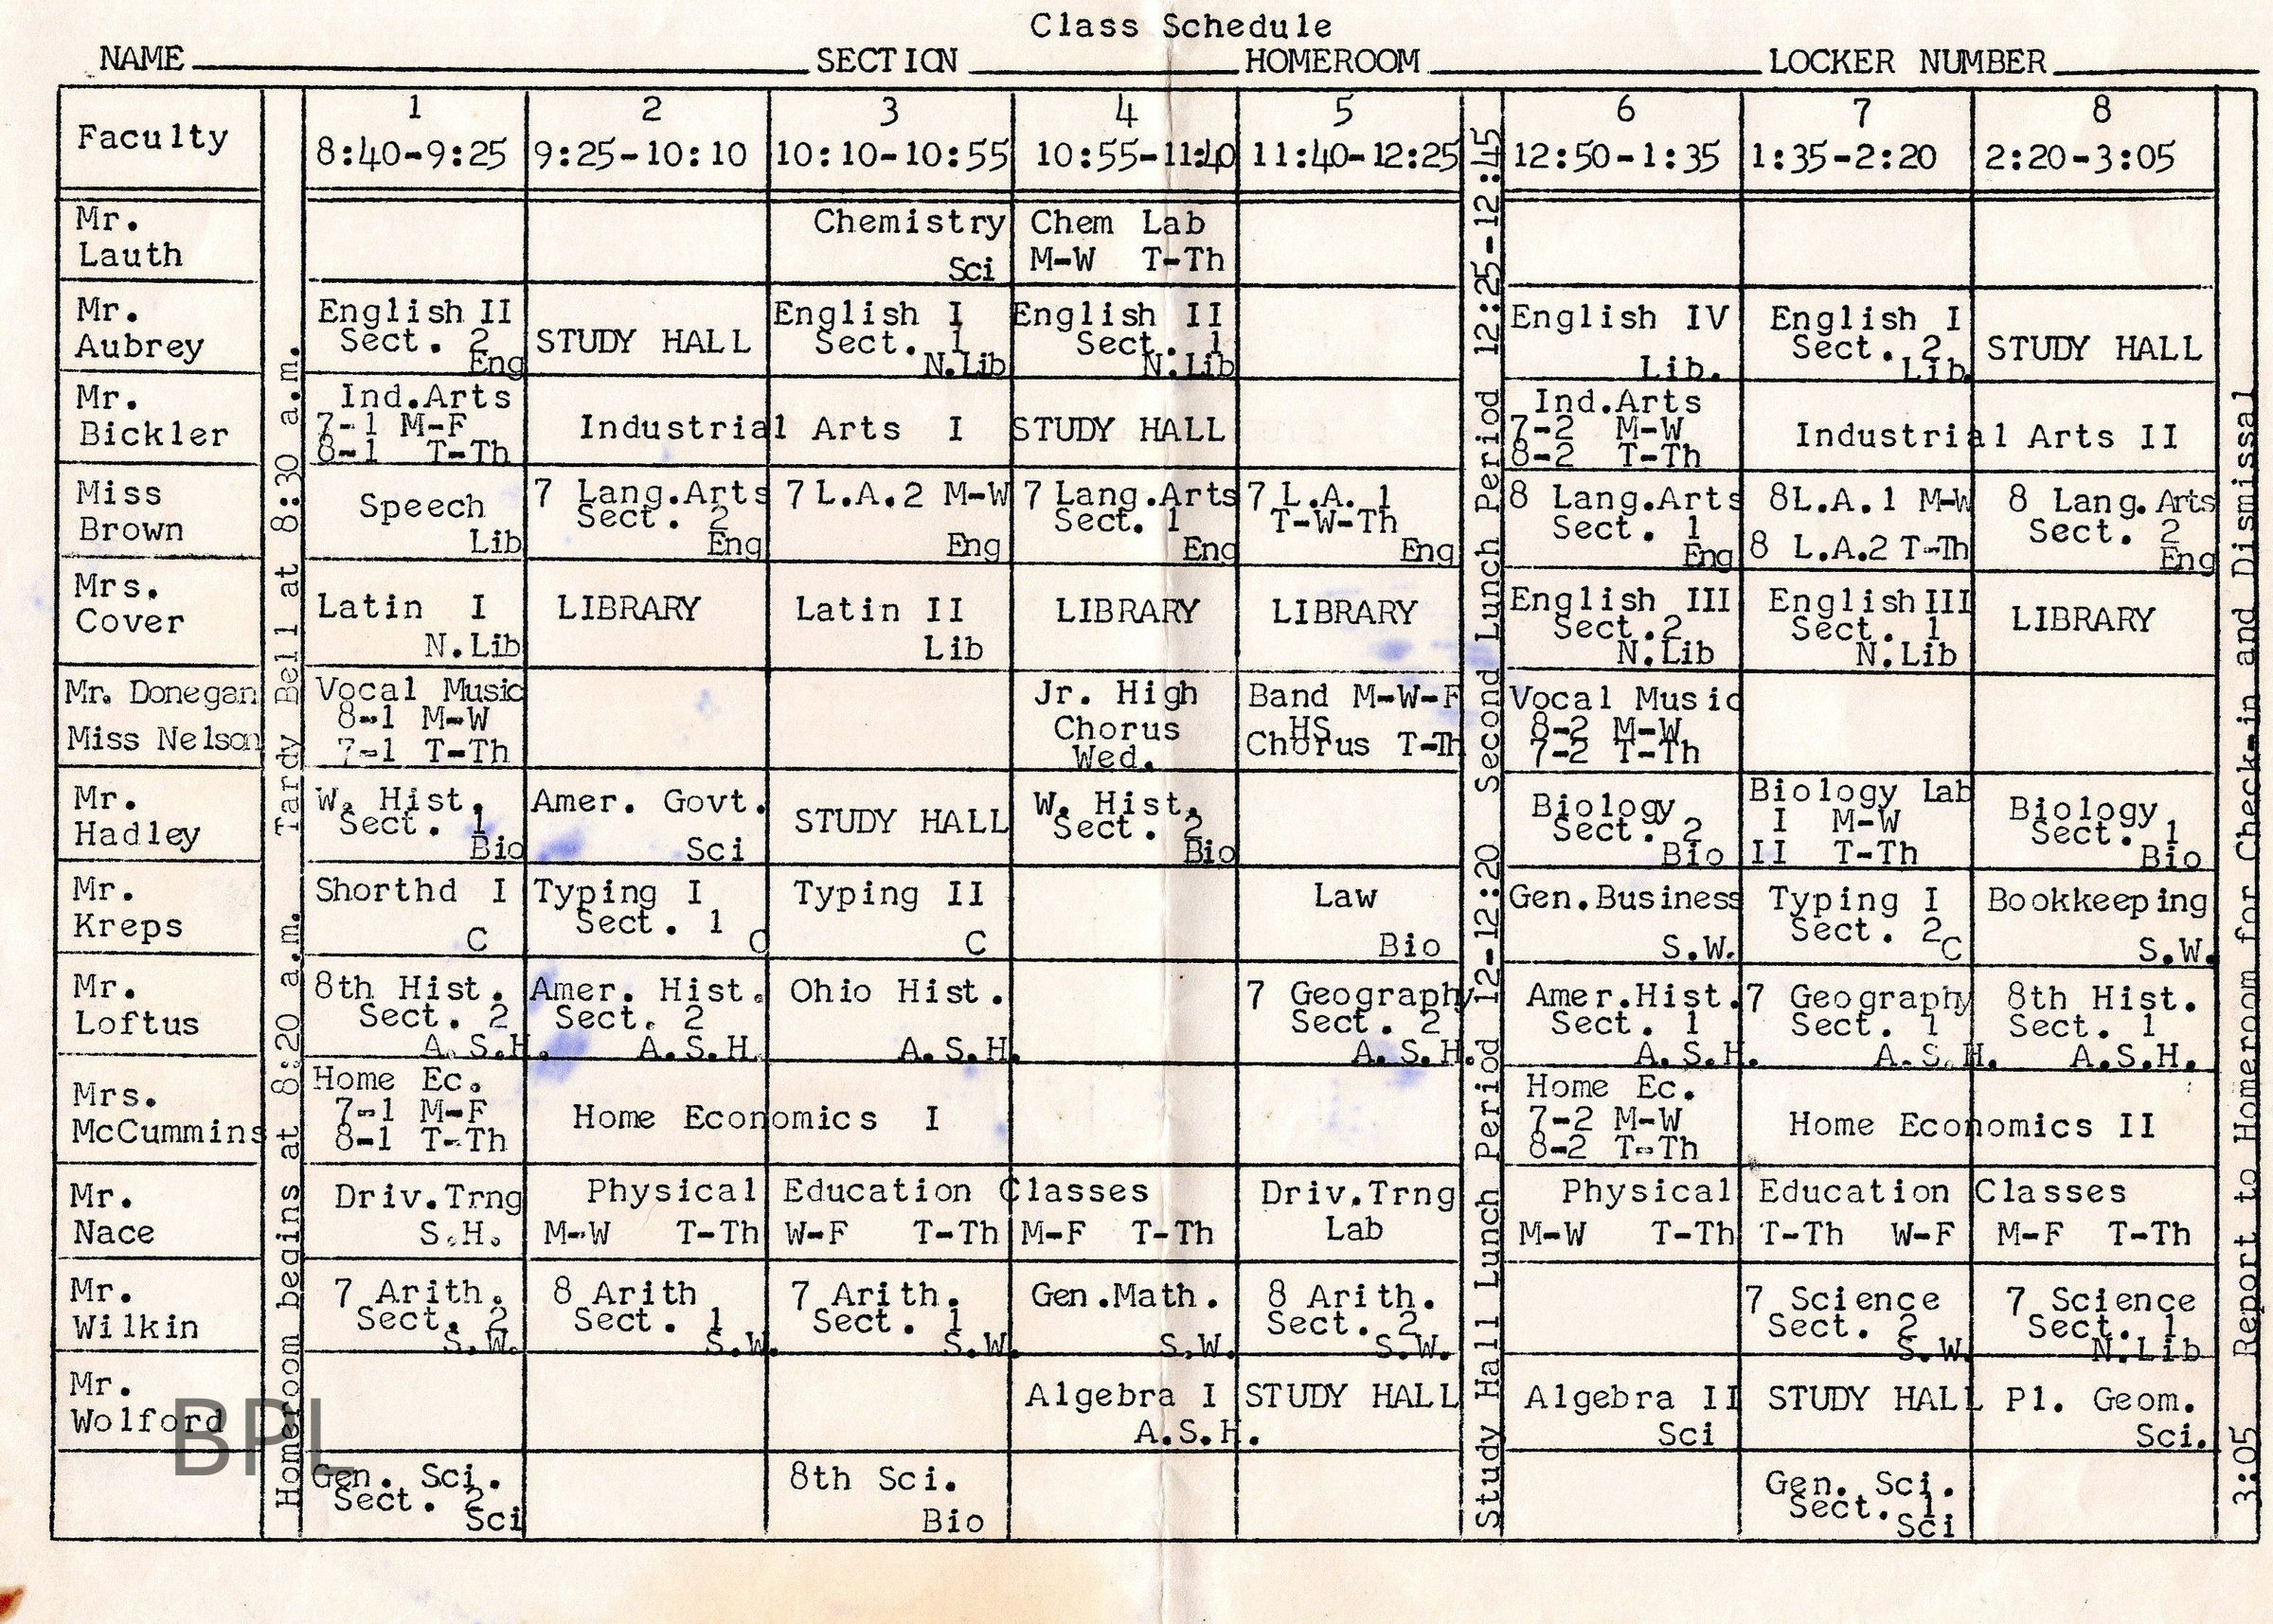 Class Schedule
NAME SECTION HOMEROOM LOCKER NUMBER
Faculty
1 2 3 4 5 6 7 8
8:40-9:25 9:25-10:10 10:10-10:55 10:55-11:40 11:40-12:25 12:50-1:35 1:35-2:20 2:20-3:05
Homeroom begins at 8:20 a.m. Tardy Bell at 8:30 a.m.
Study Hall Lunch Period 12-12:20 Second Lunch Period 12:25-12:45
3:05 Report to Homeroom for Check-in and Dismissal
Mr.
Lauth
Chemistry
Sci
Chem Lab
M-W T-Th
Mr.
Aubrey
English II
Sect. 2
Eng
STUDY HALL
English I
Sect. 1
N.Lib
English II
Sect. 1
N.Lib
English IV
Lib.
English I
Sect. 2
Lib.
STUDY HALL
Mr.
Bickler
Ind.Arts
7-1 M-F
8-1 T-Th
Industrial Arts I
STUDY HALL
Ind.Arts
7-2 M-W
8-2 T-Th
Industrial Arts II
Miss
Brown
Speech
Lib
7 Lang.Arts
Sect. 2
Eng
7 L.A.2 M-W
Eng
7 Lang.Arts
Sect. 1
Eng
7 L.A. 1
T-W-Th
Eng
8 Lang.Arts
Sect. 1
Eng
8L.A.1 M-W
8 L.A.2 T-Th
8 Lang.Arts
Sect. 2
Eng
Mrs.
Cover
Latin I
N.Lib
LIBRARY
Latin II
Lib
LIBRARY
LIBRARY
English III
Sect.2
N.Lib
English III
Sect. 1
N.Lib
LIBRARY
Mr. Donegan
Miss Nelson
Vocal Music
8-1 M-W
7-1 T-Th
Jr. High
Chorus
Wed.
Band M-W-F
HS
Chorus T-Th
Vocal Music
8-2 M-W
7-2 T-Th
Mr.
Hadley
W. Hist.
Sect. 1
Bio
Amer. Govt.
Sci
STUDY HALL
W. Hist.
Sect. 2
Bio
Biology
Sect. 2
Bio
Biology Lab
I M-W
II T-Th
Biology
Sect. 1
Bio
Mr.
Kreps
Shorthd I
C
Typing I
Sect. 1
C
Typing II
C
Law
Bio
Gen.Business
S.W.
Typing I
Sect. 2
C
Bookkeeping
S.W.
Mr.
Loftus
8th Hist.
Sect. 2
A.S.H.
Amer. Hist.
Sect. 2
A.S.H.
Ohio Hist.
A.S.H.
7 Geography
Sect. 2
A.S.H.
Amer.Hist.
Sect. 1
A.S.H.
7 Geography
Sect. 1
A.S.H.
8th Hist.
Sect. 1
A.S.H.
Mrs.
McCummins
Home Ec.
7-1 M-F
8-1 T-Th
Home Economics I
Home Ec.
7-2 M-W
8-2 T-Th
Home Economics II
Mr.
Nace
Driv.Trng
S.H.
Physical Education Classes
M-W T-Th W-F T-Th M-F T-Th
Driv.Trng
Lab
Physical Education Classes
M-W T-Th T-Th W-F M-F T-Th
Mr.
Wilkin
7 Arith.
Sect. 2
S.W.
8 Arith
Sect. 1
S.W.
7 Arith.
Sect. 1
S.W.
Gen.Math.
S.W.
8 Arith.
Sect. 2
S.W.
7 Science
Sect. 2
S.W.
7 Science
Sect. 1
N.Lib
Mr.
Wolford
Algebra I
A.S.H.
STUDY HALL
Algebra II
Sci
STUDY HALL
Pl. Geom.
Sci.
Gen. Sci.
Sect. 2
Sci
8th Sci.
Bio
Gen. Sci.
Sect. 1
Sci
BPL